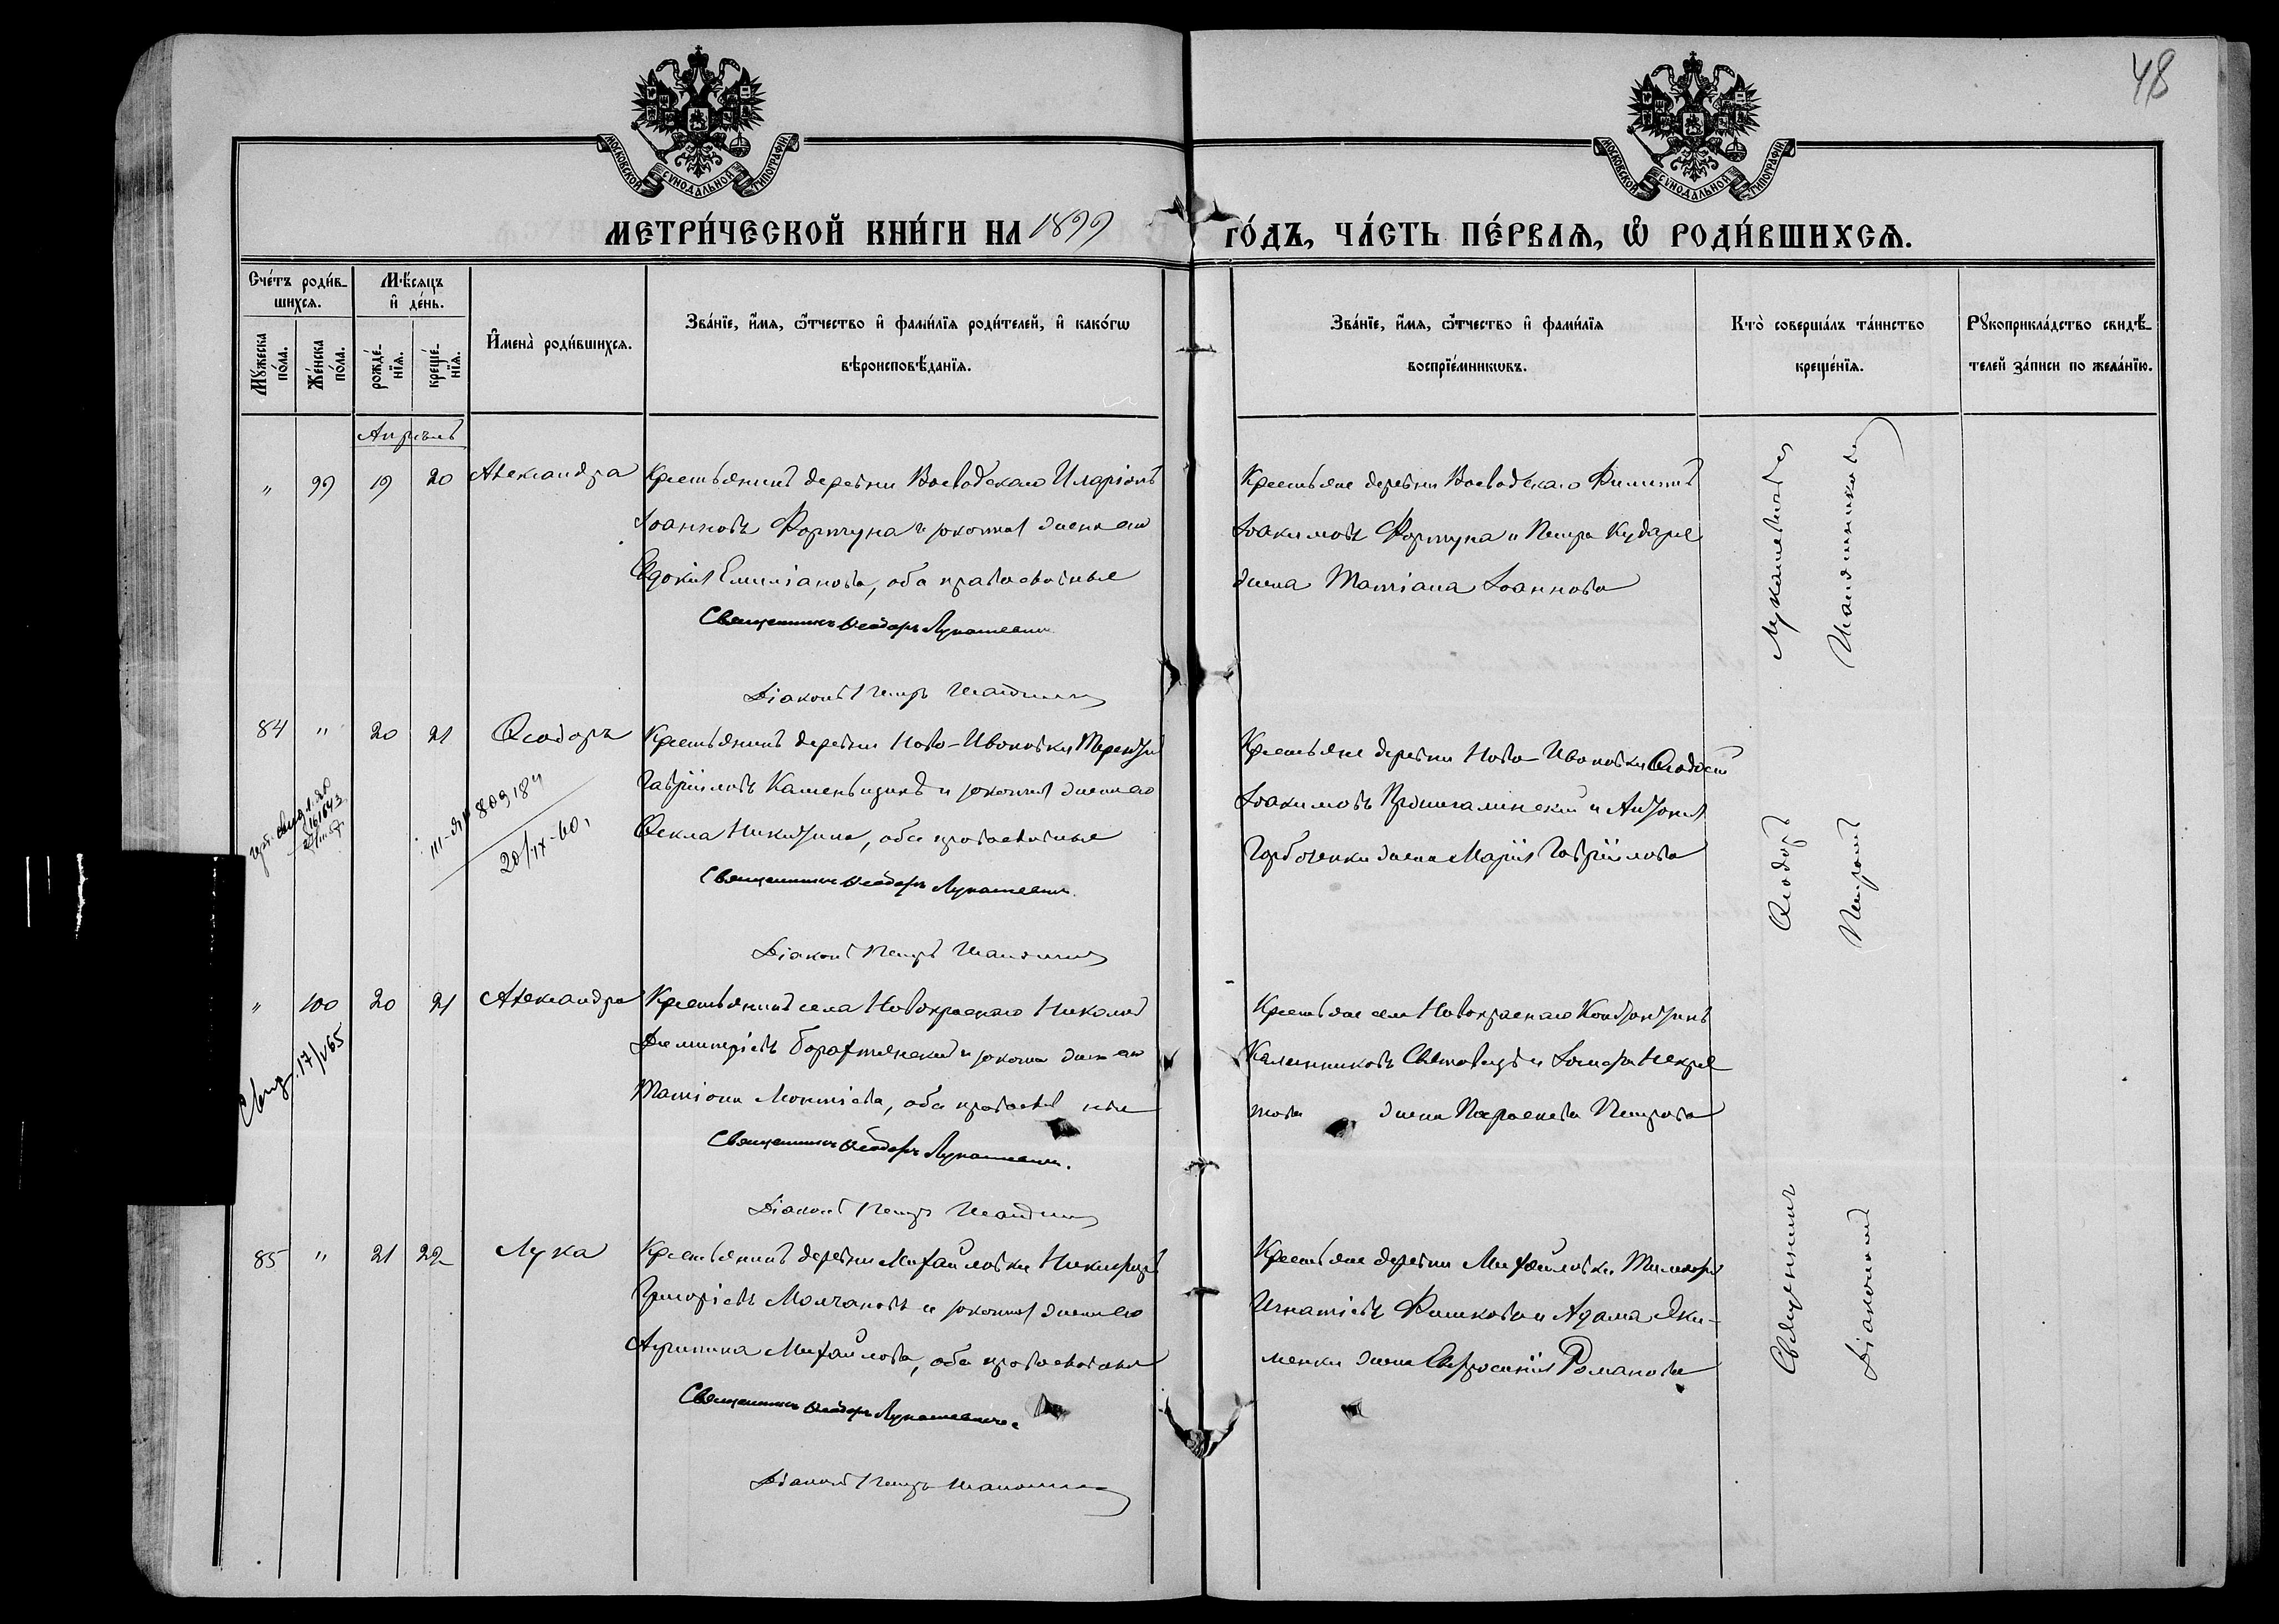 48
МОСКОВСКОЙ СѴНОДАЛЬНОЙ ТИПОГРАФІИ
МОСКОВСКОЙ СѴНОДАЛЬНОЙ ТИПОГРАФІИ
МЕТРИ́ЧЕСКОЙ КНИ́ГИ НА 1899 ГО́ДЪ, ЧА́СТЬ ПЕ́РВАѦ, Ѡ҆ РОДИ́ВШИХСѦ.
Сче́тъ роди́в-
шихсѧ.
Мꙋ́жеска по́ла.
Же́нска по́ла.
Мѣ́сѧцъ
и҆ де́нь.
рожде́-
нїѧ.
креще́-
нїѧ.
И҆мена̀ роди́вшихсѧ.
Зва́нїе, и҆́мѧ, ѻ҆́тчество и҆ фами́лїѧ роди́телей, и҆ како́гѡ
вѣроисповѣ́данїѧ.
Зва́нїе, и҆́мѧ, ѻ҆́тчество и҆ фами́лїѧ
воспрїе́мникѡвъ.
Кто̀ соверша́лъ та́инство
креще́нїѧ.
Рꙋкоприкла́дство свидѣ́-
телей за́писи по жела́нїю.
Апрѣль
" 99 19 20 Александра
Крестьянинъ деревни Воеводскаго Иларіонъ
Іоанновъ Фортуна и законная жена его
Евдокія Емиліанова, оба православные
Священникъ Ѳеодоръ Лукашевичъ
Діаконъ Петръ
Крестьяне деревни Воеводскаго Филиппъ
Іоакимовъ Фортуна и Петра Кударе
жена Татіана Іоаннова
84 " 20 21 Ѳеодоръ
Крестьянинъ деревни Ново-Ивановки Терентій
Гавріиловъ Каменьщикъ и законная жена его
Ѳекла Никитина, оба православные
Священникъ Ѳеодоръ Лукашевичъ.
Діаконъ Петръ
Крестьяне деревни Ново-Ивановки Ѳеодосій
Іоакимовъ и Антонія
Горбатенки жена Марія Гавріилова
III-ЯИ 809184
20/IX-60,
" 100 20 21 Александра
Крестьянинъ села Новокраснаго Николай
Димитріевъ и законная жена его
Татіана Леонтіева, оба православные
Священникъ Ѳеодоръ Лукашевичъ.
Діаконъ Петръ
Крестьяне села Новокраснаго Константинъ
Калинниковъ и Іосифа Некра
сова жена Параскева Петрова
Свид. 17/V65
85 " 21 22 Лука
Крестьянинъ деревни Михайловки Никифоръ
Григоріевъ Молчановъ и законная жена его
Агриппина Михайлова, оба православные
Священникъ Ѳеодоръ Лукашевичъ.
Діаконъ Петръ
Крестьяне деревни Михайловки Тимофей
Игнатіевъ Фишковъ и Адама Яки-
менки жена Евфросинія Романова
Священникъ Ѳеодоръ Лукашевичъ
Діакономъ Петромъ